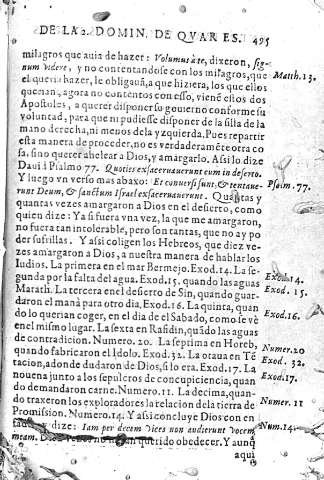 DE LA 2. DOMIN. DE QVARES. 495
milagros que auia de hazer: Volumus à te, dixeron, sig-
num videre, y no contentandose con los milagros, que Matth. 13.
el queria hazer, le obligauã, a que hiziera, los que ellos
querian, agora no contentos con esso, vienẽ estos dos
Apostoles, a querer disponer su gouierno conforme su
voluntad, para que ni pudiesse disponer de la silla de la
mano derecha, ni menos de la yzquierda. Pues repartir
esta manera de proceder, no es verdaderamẽte otra co
sa, sino querer ahelear a Dios, y amargarlo. Assi lo dize
Daui. Psalmo 77. Quoties exacerauerunt eum in deserto. Psalm. 77.
Y luego vn verso mas abaxo: Et conuersi sunt, & tentaue-
runt Deum, & sanctum Israel exacerauerunt. Quãtas y
quantas vezes amargaron a Dios en el desierto, como
quien dize: Ya si fuera vna vez, la que me amargaron,
no fuera tan intolerable, pero son tantas, que no ay po
der sufrillas. Y assi coligen los Hebreos, que diez ve-
zes amargaron a Dios, a nuestra manera de hablar los
Iudios. La primera en el mar Bermejo. Exod. 14. La se- Exod. 14.
gunda por la falta del agua. Exod. 15. quando las aguas Exod. 15.
Marath. La tercera en el desierto de Sin, quando guar-
daron el manà para otro dia. Exod. 16. La quinta, quan Exod. 16.
do lo querian coger, en el dia de el Sabado, como se vè
en el mismo lugar. La sexta en Rafidin, quãdo las aguas
de contradicion. Numero. 20. La septima en Horeb, Numer. 20
quando fabricaron el Idolo. Exod. 32. La octaua en Tẽ Exod. 32.
tacion, adonde dudaron de Dios, si lo era. Exod. 17. La Exod. 17.
nouena junto a los sepulcros de concupiciencia, quan
do demandaron carne. Numero. 11. La decima, quan- Numer. 11
do traxeron los exploradores la relacion de la tierra de
Promission. Numero. 14. Y assi concluye Dios con en Num. 14.
y dize: Iam per decem vices non audierunt vocem
meam. querido obedecer. Y aunq̃
aqui